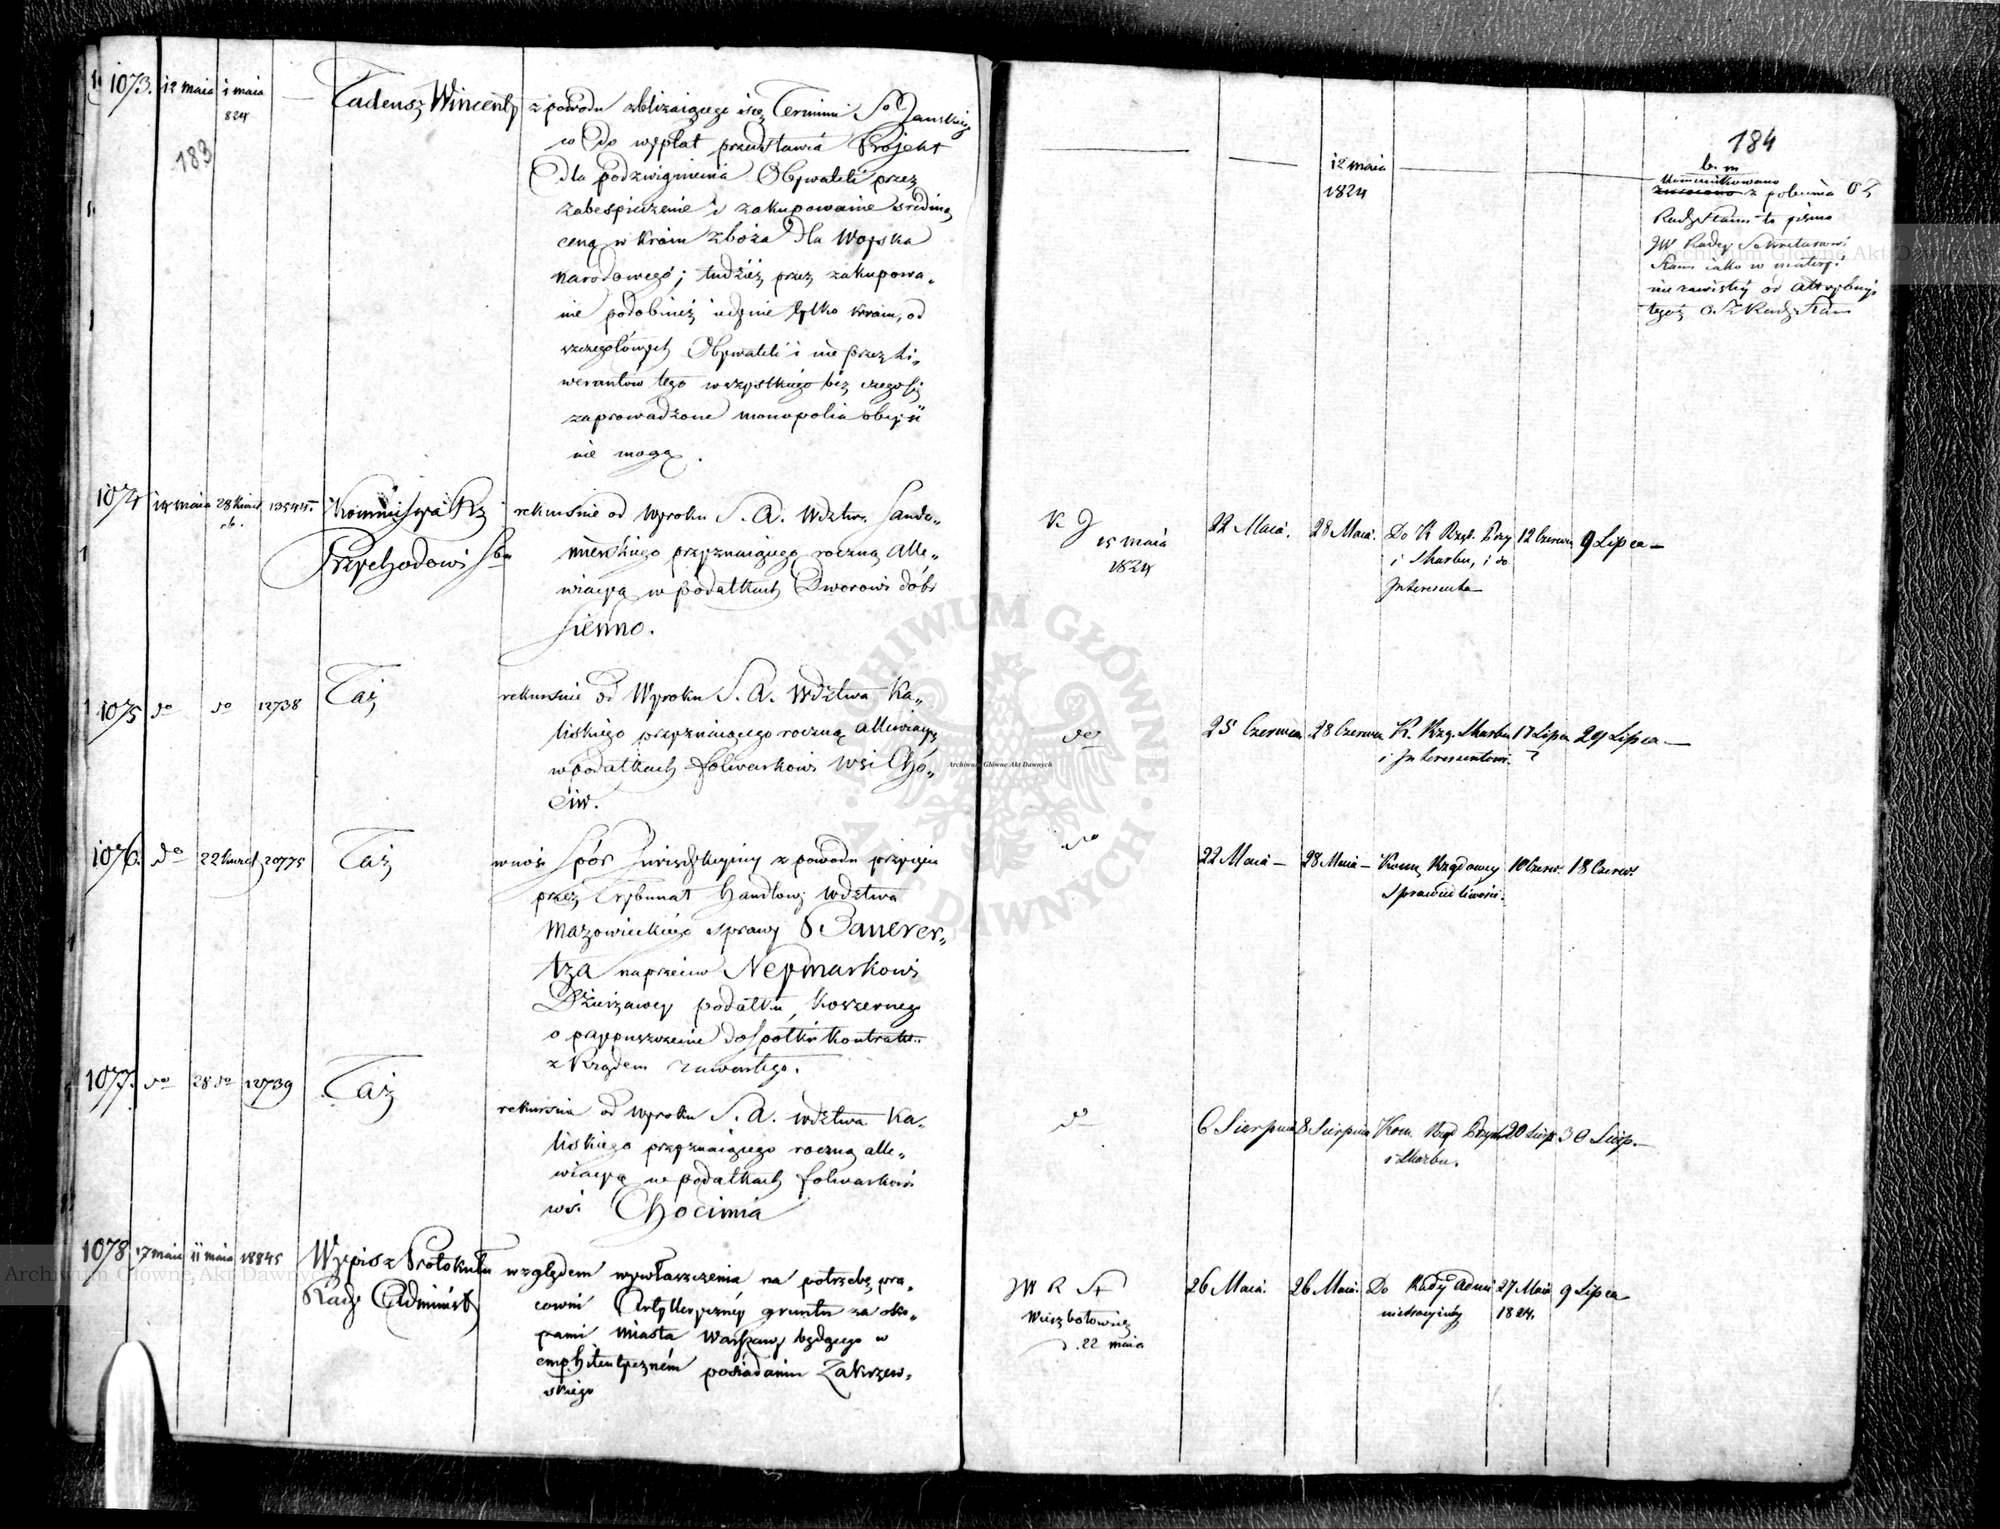 1073. 12 maia 1 maia 824 — Tadeusz Wincenty
183
z powodu zbliżaiącego się Terminu So Jańskieg
o Do wypłat przedstawia Projekt
dla podzwignienia Obywateli przez
zabespieczenie i zakupowanie średnią
ceną w Kraiu Zboża dla Woyska
narodowego; tudzież przez zakupowa„
nie podobnież iedynie tylko w kraiu, od
szczegółowych Obywateli i nie przez Li„
werantów tego wszystkiego bez czego się
zaprowadzone monopolia obeyść
nie mogą.
184
12 maia
1824
b. m
kommunikowano
z polecenia
Rady Stanu to pismo
JW Radcy Sekretarzowi
Stanu iako w materyi
nie zawisłey od Attrybucyi
tegoż Rady Stanu
1074 14 maia 28 Kwiet 13545. Kommissya Rz
Przychodów i Sbu
rekursuie od Wyroku S. A. Wdztwa Sando„
mierskiego przyznaiącego roczną Alle„
wiacyą w podatkach Dworowi dóbr
Sienno.
K J
15 maia
1824
22 Maia. 28 Maia. Do K Rząd. Przy 12 Czerwca 9 Lipca —
i Skarbu, i do
Interesenta
1075 do do 12738 Taż
rekursuie od Wyroku S. A. Wdztwa Ka„
liskiego przyznaiącego roczną allewiacyą
w podatkach folwarkowi wsi Cho„
ciw.
do 25 Czerwca 28 Czerwca K. Rzą. Skarbu 17 Lipca 29 Lipca —
i Interesentowi.
1076. do 22 Kwiet 20775 Taż
wnosi Spór Jurisdykcyiny z powodu przyjęcia
przez Trybunał Handlowy Wdztwa
Mazowieckiego sprawy Bauerer„
tza naprzeciw Neymarkowi
Dzierżawcy podatku koszernego
o przypuszczenie do Spółki kontraktu
z Rządem zawartego.
do 22 Maia — 28 Maia — Komm Rządowey 10 Czerw. 18 Czerw.
Sprawiedliwości.
1077. do 28 do 12739 Taż
rekursuie od Wyroku S. A. Wdztwa Ka„
liskiego przyznaiącego roczną alle„
wiacyą w podatkach folwarkowi
wsi Chocimia
do 6 Sierpnia 8 Sierpnia Kom Rząd Przych 20 Sierp 30 Sierp. —
i Skarbu.
1078 17 maia 11 maia 18845 Wypis z Protokułu
Rady Administ
względem wywłaszczenia na potrzebę pra„
cowni Artylleryczney gruntu za oko„
pami miasta Warszawy będącego w
emphiteutycznem posiadaniu Zakrzew„
skiego
JW R St
Wierzbołowicz
d. 22 maia
26 Maia. 26 Maia. Do Rady Admi 27 Maia 9 Lipca
nistracyiney 1824.
ARCHIWUM GŁÓWNE AKT DAWNYCH
Archiwum Główne Akt Dawnych